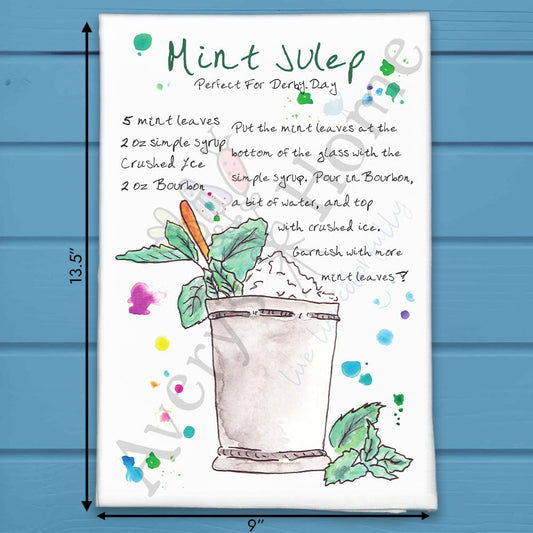 Mint Julep
Perfect For Derby Day
5 mint leaves
2 oz simple syrup
Crushed Ice
2 oz Bourbon
Put the mint leaves at the
bottom of the glass with the
simple syrup. Pour in Bourbon,
a bit of water, and top
with crushed ice.
Garnish with more
mint leaves!
13.5"
9"
Avery
Home
live life colorfully